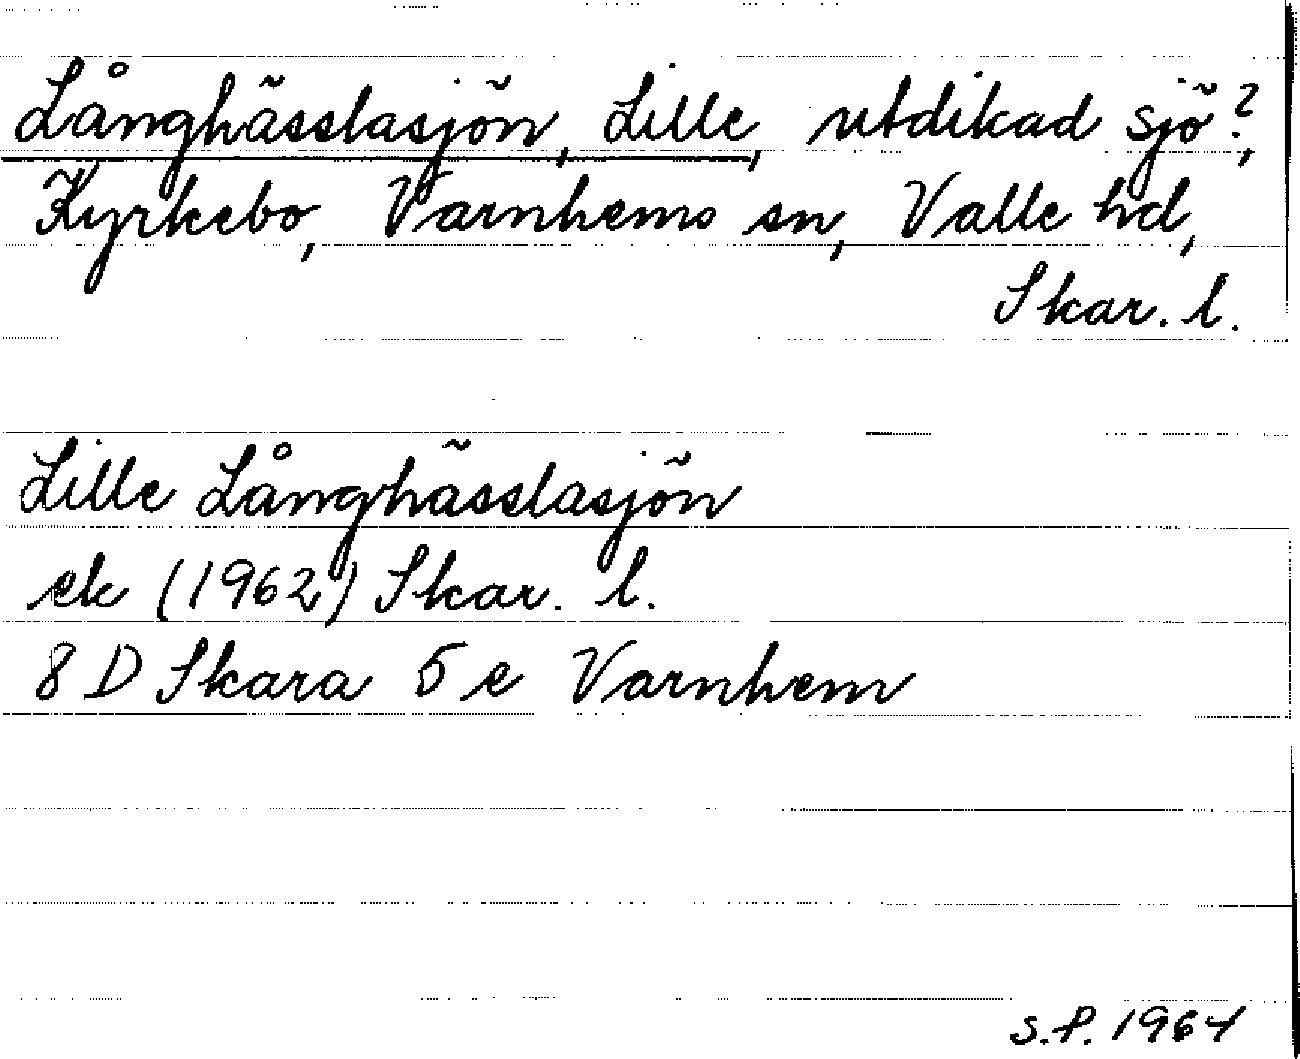 Långhässlasjön, Lille, utdikad sjö?,
Kyrkebo, Varnhems sn, Valle hd,
Skar. l.
Lille Långhässlasjön
ek (1962) Skar. l.
8 D Skara 5 e Varnhem
S.P. 1964